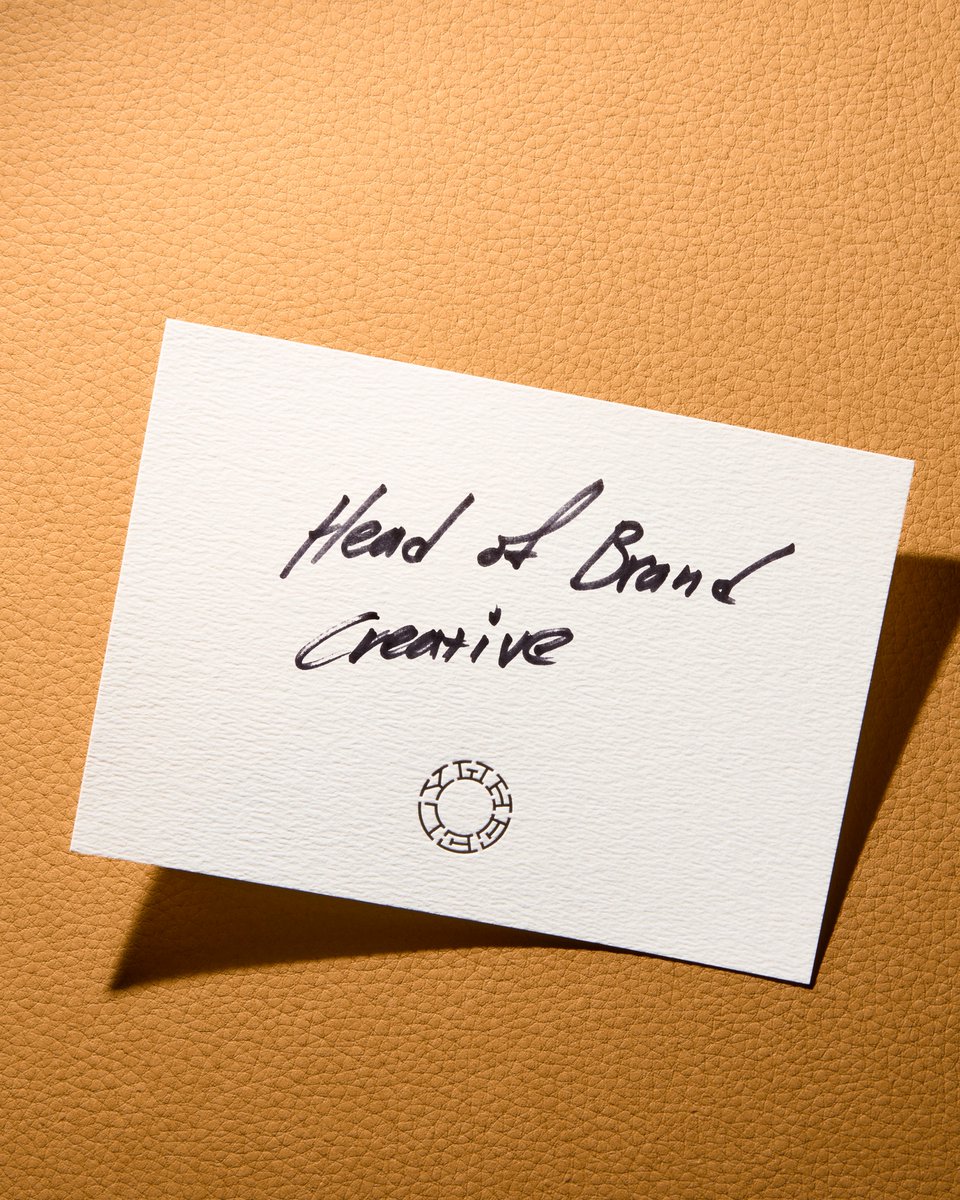 Head of Brand
Creative